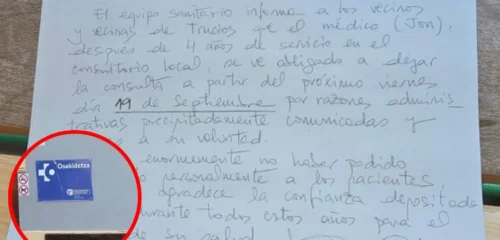 El equipo sanitario informa a los vecinos
y vecinas de Trucios que el médico (Jon).
después de 4 años de servicio en el
consultorio local, se ve obligado a dejar
la consulta a partir del próximo viernes
día 19 de Septiembre por razones adminis
trativas precipitadamente comunicadas y
a su voluntad.
enormemente no haber podido
personalmente a los pacientes,
agradece la confianza depositada
durante todos estos años para el
de su salud.
Osakidetza